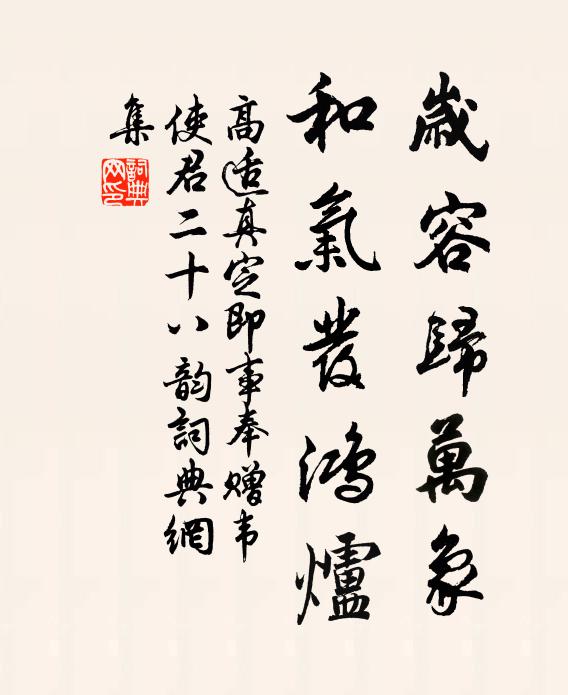 歲容歸萬象
和氣發鴻爐
高適真定即事奉赠韦
使君二十八韵詞典網
集
詞典網印